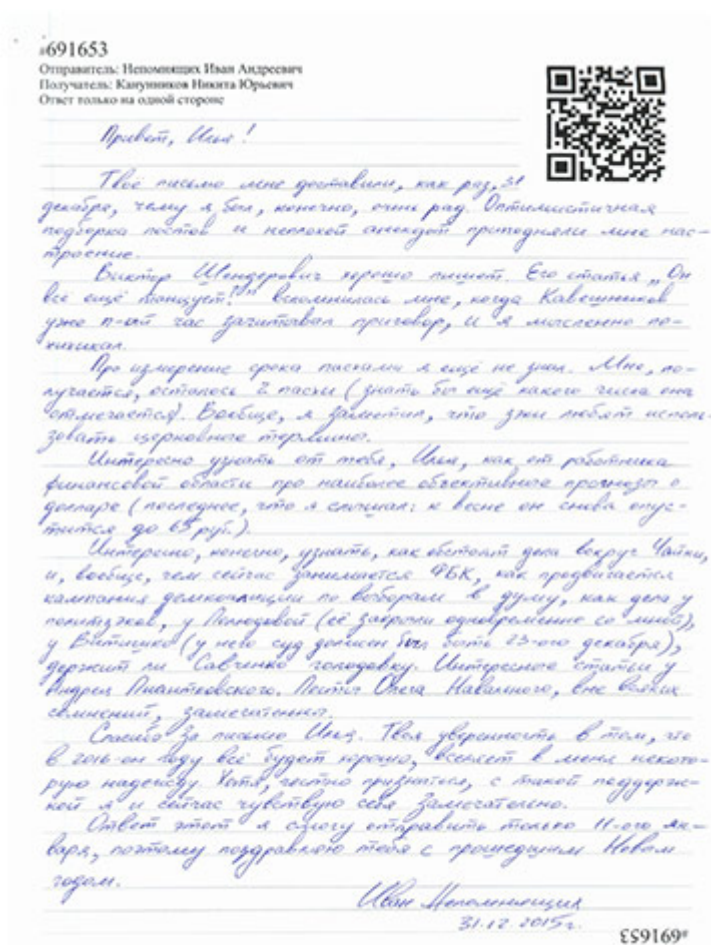 #691653
Отправитель: Непомнящих Иван Андреевич
Получатель: Канунников Никита Юрьевич
Ответ только на одной стороне
Привет, Илья!
Твоё письмо мне доставили, как раз, 31
декабря, чему я был, конечно, очень рад. Оптимистичная
подборка постов и неплохой анекдот приподняли мне нас-
троение.
Виктор Шендерович хорошо пишет. Его статья „Он
всё ещё танцует!" вспомнилась мне, когда Кавешников
уже n-ый час зачитывал приговор, и я мысленно по-
хихикал.
Про измерение срока пасхами я ещё не знал. Мне, по-
лучается, осталось 2 пасхи (знать бы ещё какого числа она
отмечается). Вообще, я заметил, что зэки любят исполь-
зовать церковные термины.
Интересно узнать от тебя, Илья, как от работника
финансовой области про наиболее объективные прогнозы о
долларе (последнее, что я слышал: к весне он снова опус-
тится до 65 руб.).
Интересно, конечно, узнать, как обстоят дела вокруг Чайки,
и, вообще, чем сейчас занимается ФБК, как продвигается
кампания демкоалиции по выборам в думу, как дела у
политзэков, у Полюдовой (её закрыли одновременно со мной),
у Витишко (у него суд должен был быть 23-ого декабря),
держит ли Савченко голодовку. Интересные статьи у
Андрея Пионтковского. Посты Олега Навального, вне всяких
сомнений, замечательны.
Спасибо за письмо Илья. Твоя уверенность в том, что
в 2016-ом году всё будет хорошо, вселяет в меня некото-
рую надежду. Хотя, честно признаться, с такой поддерж-
кой я и сейчас чувствую себя замечательно.
Ответ этот я смогу отправить только 11-ого ян-
варя, поэтому поздравляю тебя с прошедшим Новым
годом.
Иван Непомнящих
31.12.2015г.
#691653